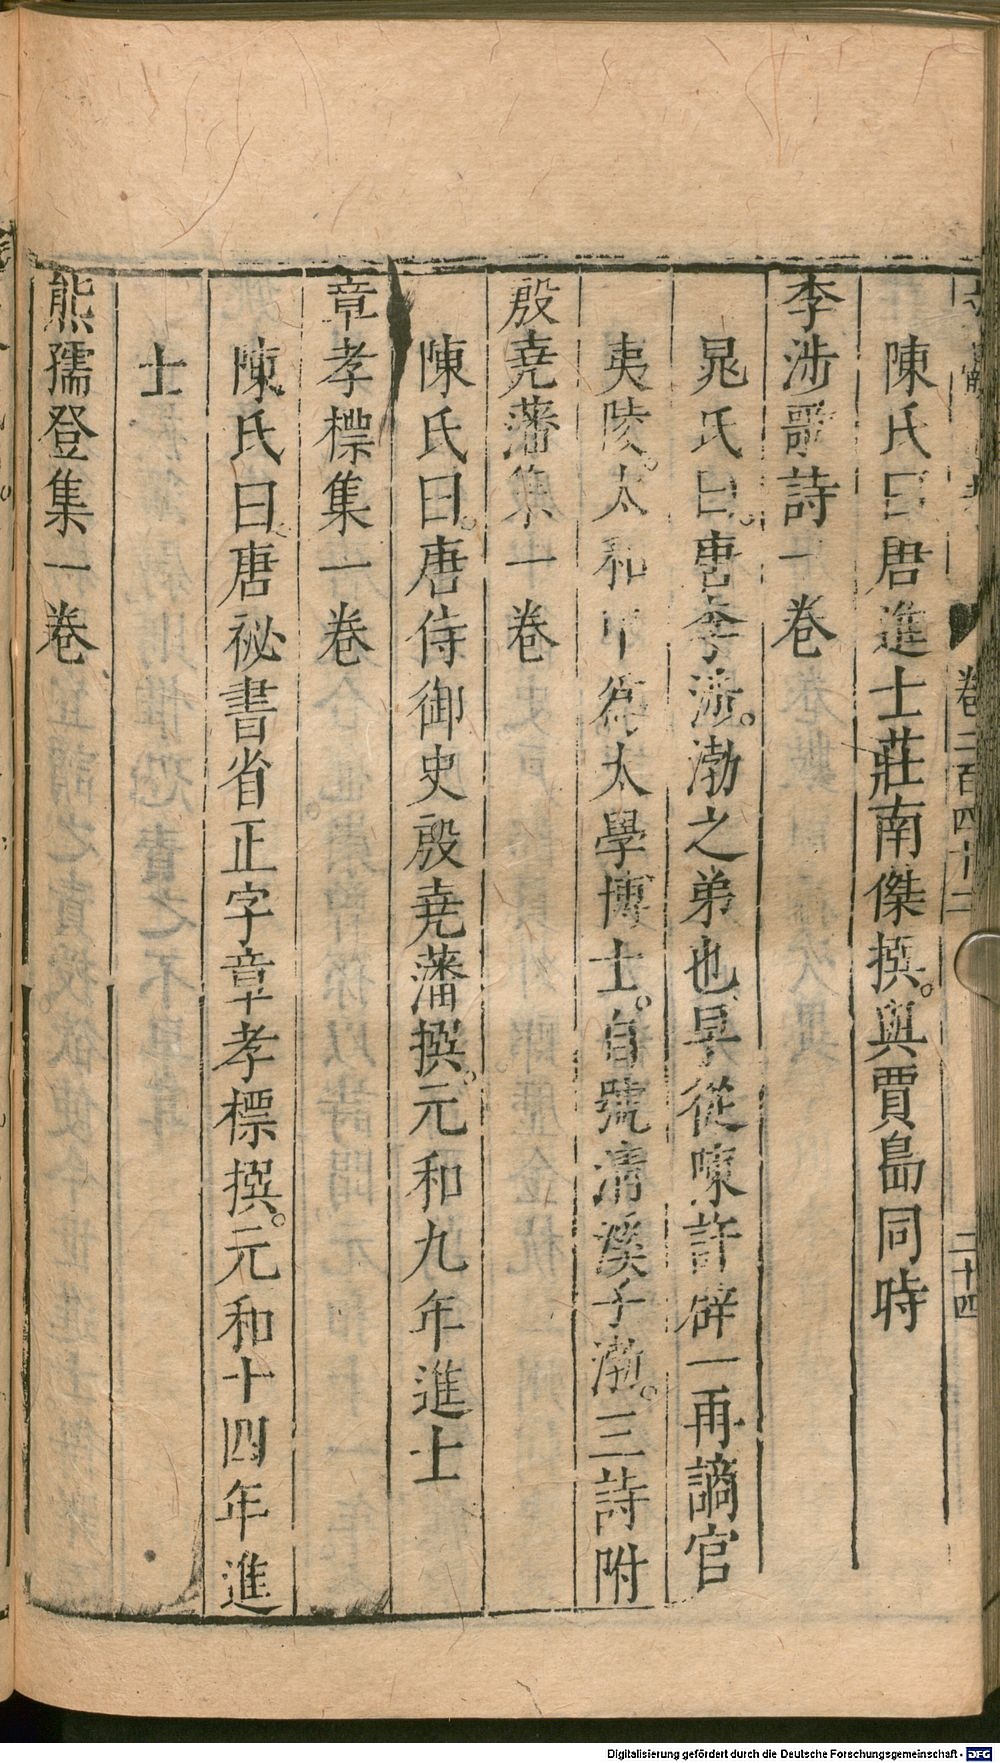 卷二百四十二　二十四
陳氏曰唐進士莊南傑撰。與賈島同時
李涉歌詩一卷
晁氏曰。唐李涉。渤之弟也早從陳許辟一再謫官
夷陵。太和中爲太學博士。自號淸溪子渤。三詩附
殷堯藩集一卷
陳氏曰。唐侍御史殷堯藩撰。元和九年進士
章孝標集一卷
陳氏曰。唐祕書省正字章孝標撰。元和十四年進
士
熊孺登集一卷
Digitalisierung gefördert durch die Deutsche Forschungsgemeinschaft - DFG